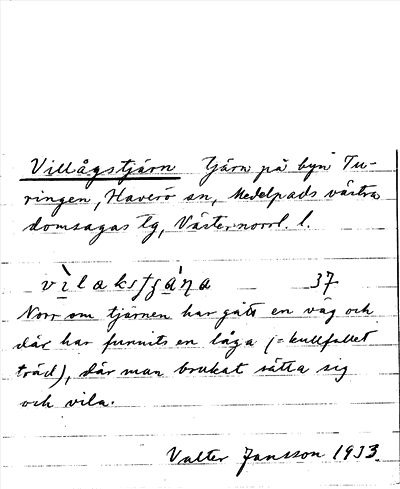 Villågstjärn Tjärn på byn Tu-
ringen, Haverö sn, Medelpads västra
domsagas tg, Västernorrl. l.
vìlaksʃɟáṇa 37
Norr om tjärnen har gått en väg och
där har funnits en låga (= kullfallet
träd), där man brukat sätta sig
och vila.
Valter Jansson 1933.